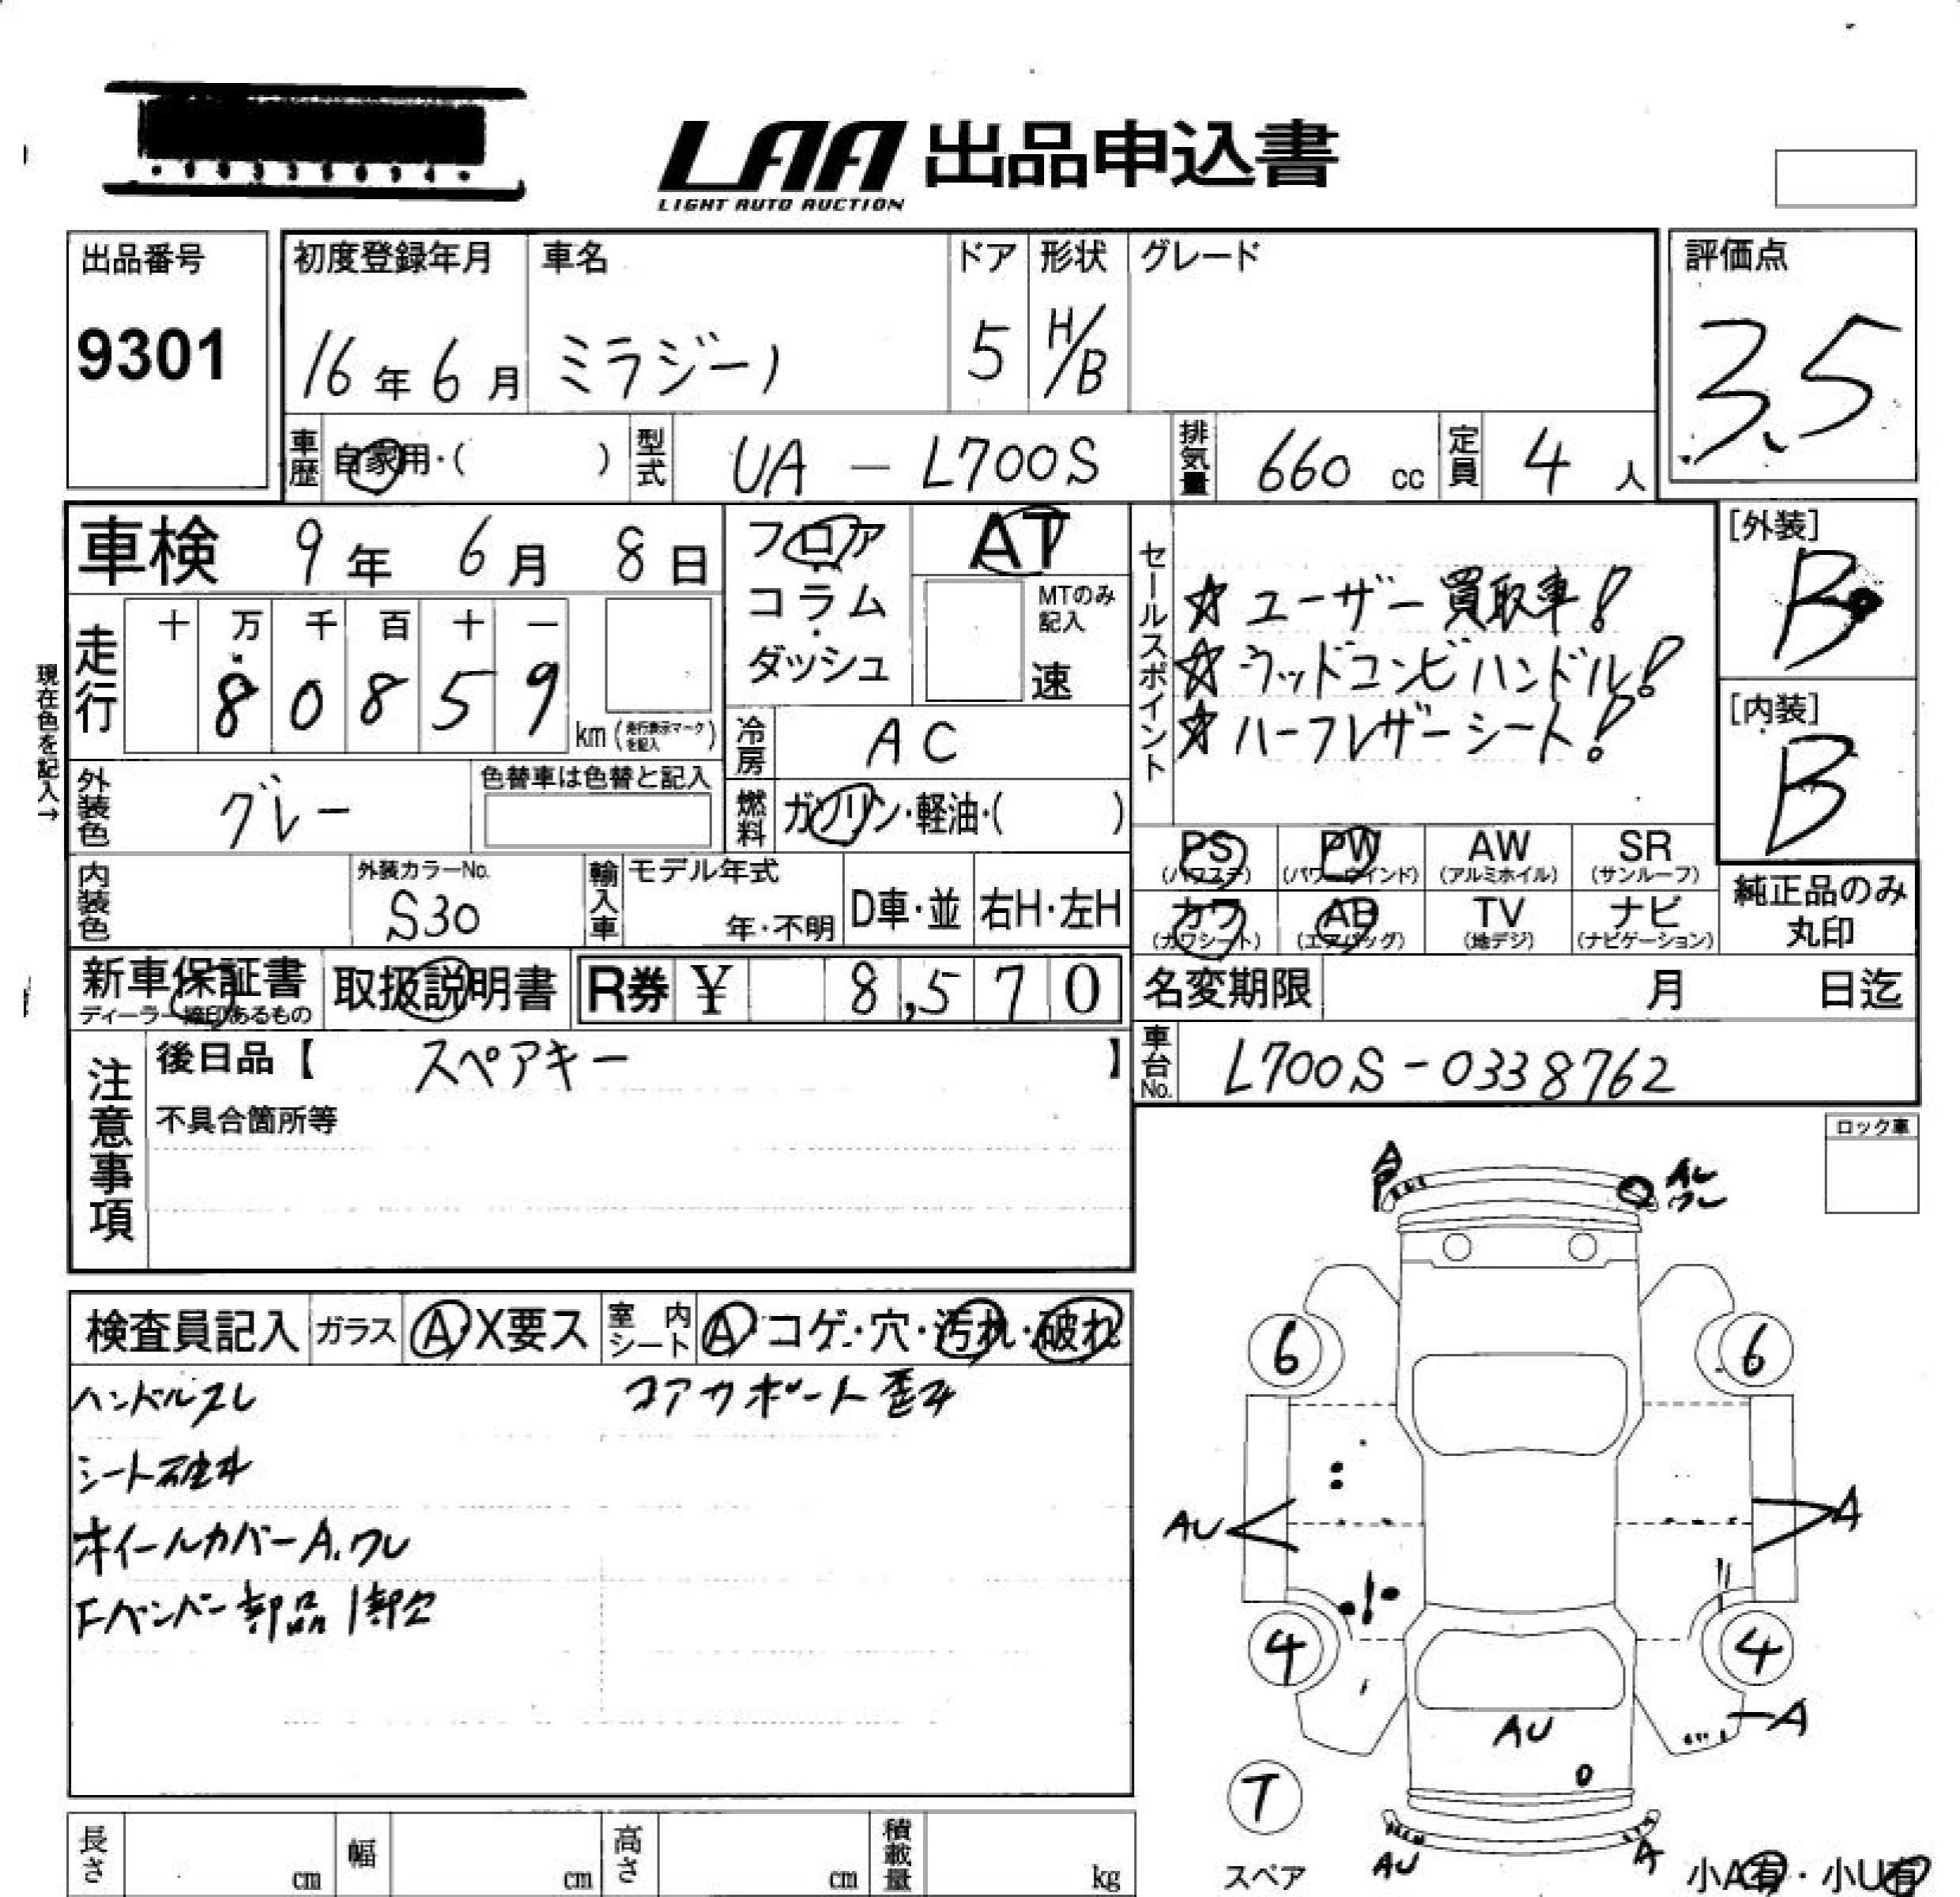 LAA 出品申込書
LIGHT AUTO AUCTION
出品番号
9301
初度登録年月
16年6月
車名
ミラジーノ
ドア
5
形状
H/B
グレード
評価点
3.5
車歴
自家用・( )
型式
UA - L700S
排気量
660 cc
定員
4 人
車検 9年 6月 8日
フロア
コラム
・
ダッシュ
AT
MTのみ
記入
速
セールスポイント
☆ユーザー買取車!
☆ウッドコンビハンドル!
☆ハーフレザーシート!
[外装]
B
[内装]
B
現在色を記入→
走行
十 万 千 百 十 一
8 0 8 5 9
km (走行表示マークを記入)
冷房
AC
外装色
グレー
色替車は色替と記入
燃料
ガソリン・軽油・( )
PS
(パワステ)
PW
(パワーウインド)
AW
(アルミホイル)
SR
(サンルーフ)
内装色
外装カラーNo.
S30
輸入車
モデル年式
年・不明
D車・並
右H・左H
カワ
(カワシート)
AB
(エアバッグ)
TV
(地デジ)
ナビ
(ナビゲーション)
純正品のみ
丸印
新車保証書
ディーラー捺印あるもの
取扱説明書
R券 ¥ 8,570
名変期限 月 日迄
注意事項
後日品【 スペアキー 】
車台No.
L700S-0338762
不具合箇所等
ロック車
A
検査員記入
ガラス
A・X要ス
室内シート
A・コゲ・穴・汚れ・破れ
ハンドルスレ
コアサポート歪み
シート破れ
ホイールカバーA.ワレ
Fバンパー部品1部欠
6
6
AU
A
4
4
A
AU
T
スペア
AU
A
小A有・小U有
長さ
cm
幅
cm
高さ
cm
積載量
kg